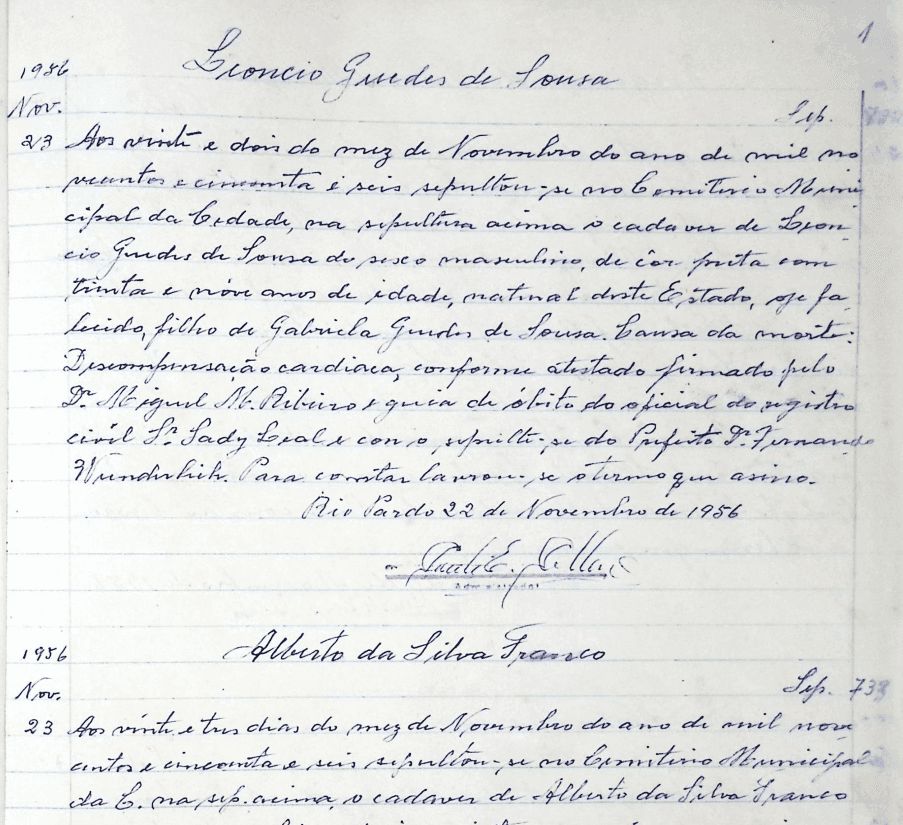 1
1956
Leoncio Guedes de Sousa
Nov.
Sep.
23 Aos vinte e dois do mez de Novembro do ano de mil no
vecentos e cincoenta e seis sepultou-se no Cemiterio Muni
cipal da Cidade, na sepultura acima o cadaver de Leon-
cio Guedes de Sousa do sexo masculino, de côr preta com
trinta e nóve anos de idade, natural deste Estado, oje fa
lecido, filho de Gabriela Guedes de Sousa. Causa da morte:
Descompensação cardiaca, conforme atestado firmado pelo
Dr. Miguel M. Ribeiro e guia de óbito do oficial do registro
civil Sr. Sady Leal e con o sepulte-se do Prefeito Dr. Fernando
Wunderlich. Para constar lavrou-se o termo que asino.
Rio Pardo 22 de Novembro de 1956
Administrador
1956
Alberto da Silva Franco
Nov.
Sep. 733
23 Aos vinte e tres dias do mez de Novembro do ano de mil nove
centos e cincoenta e seis sepultou-se no Cemiterio Municipal
da C. na sep. acima, o cadaver de Alberto da Silva Franco